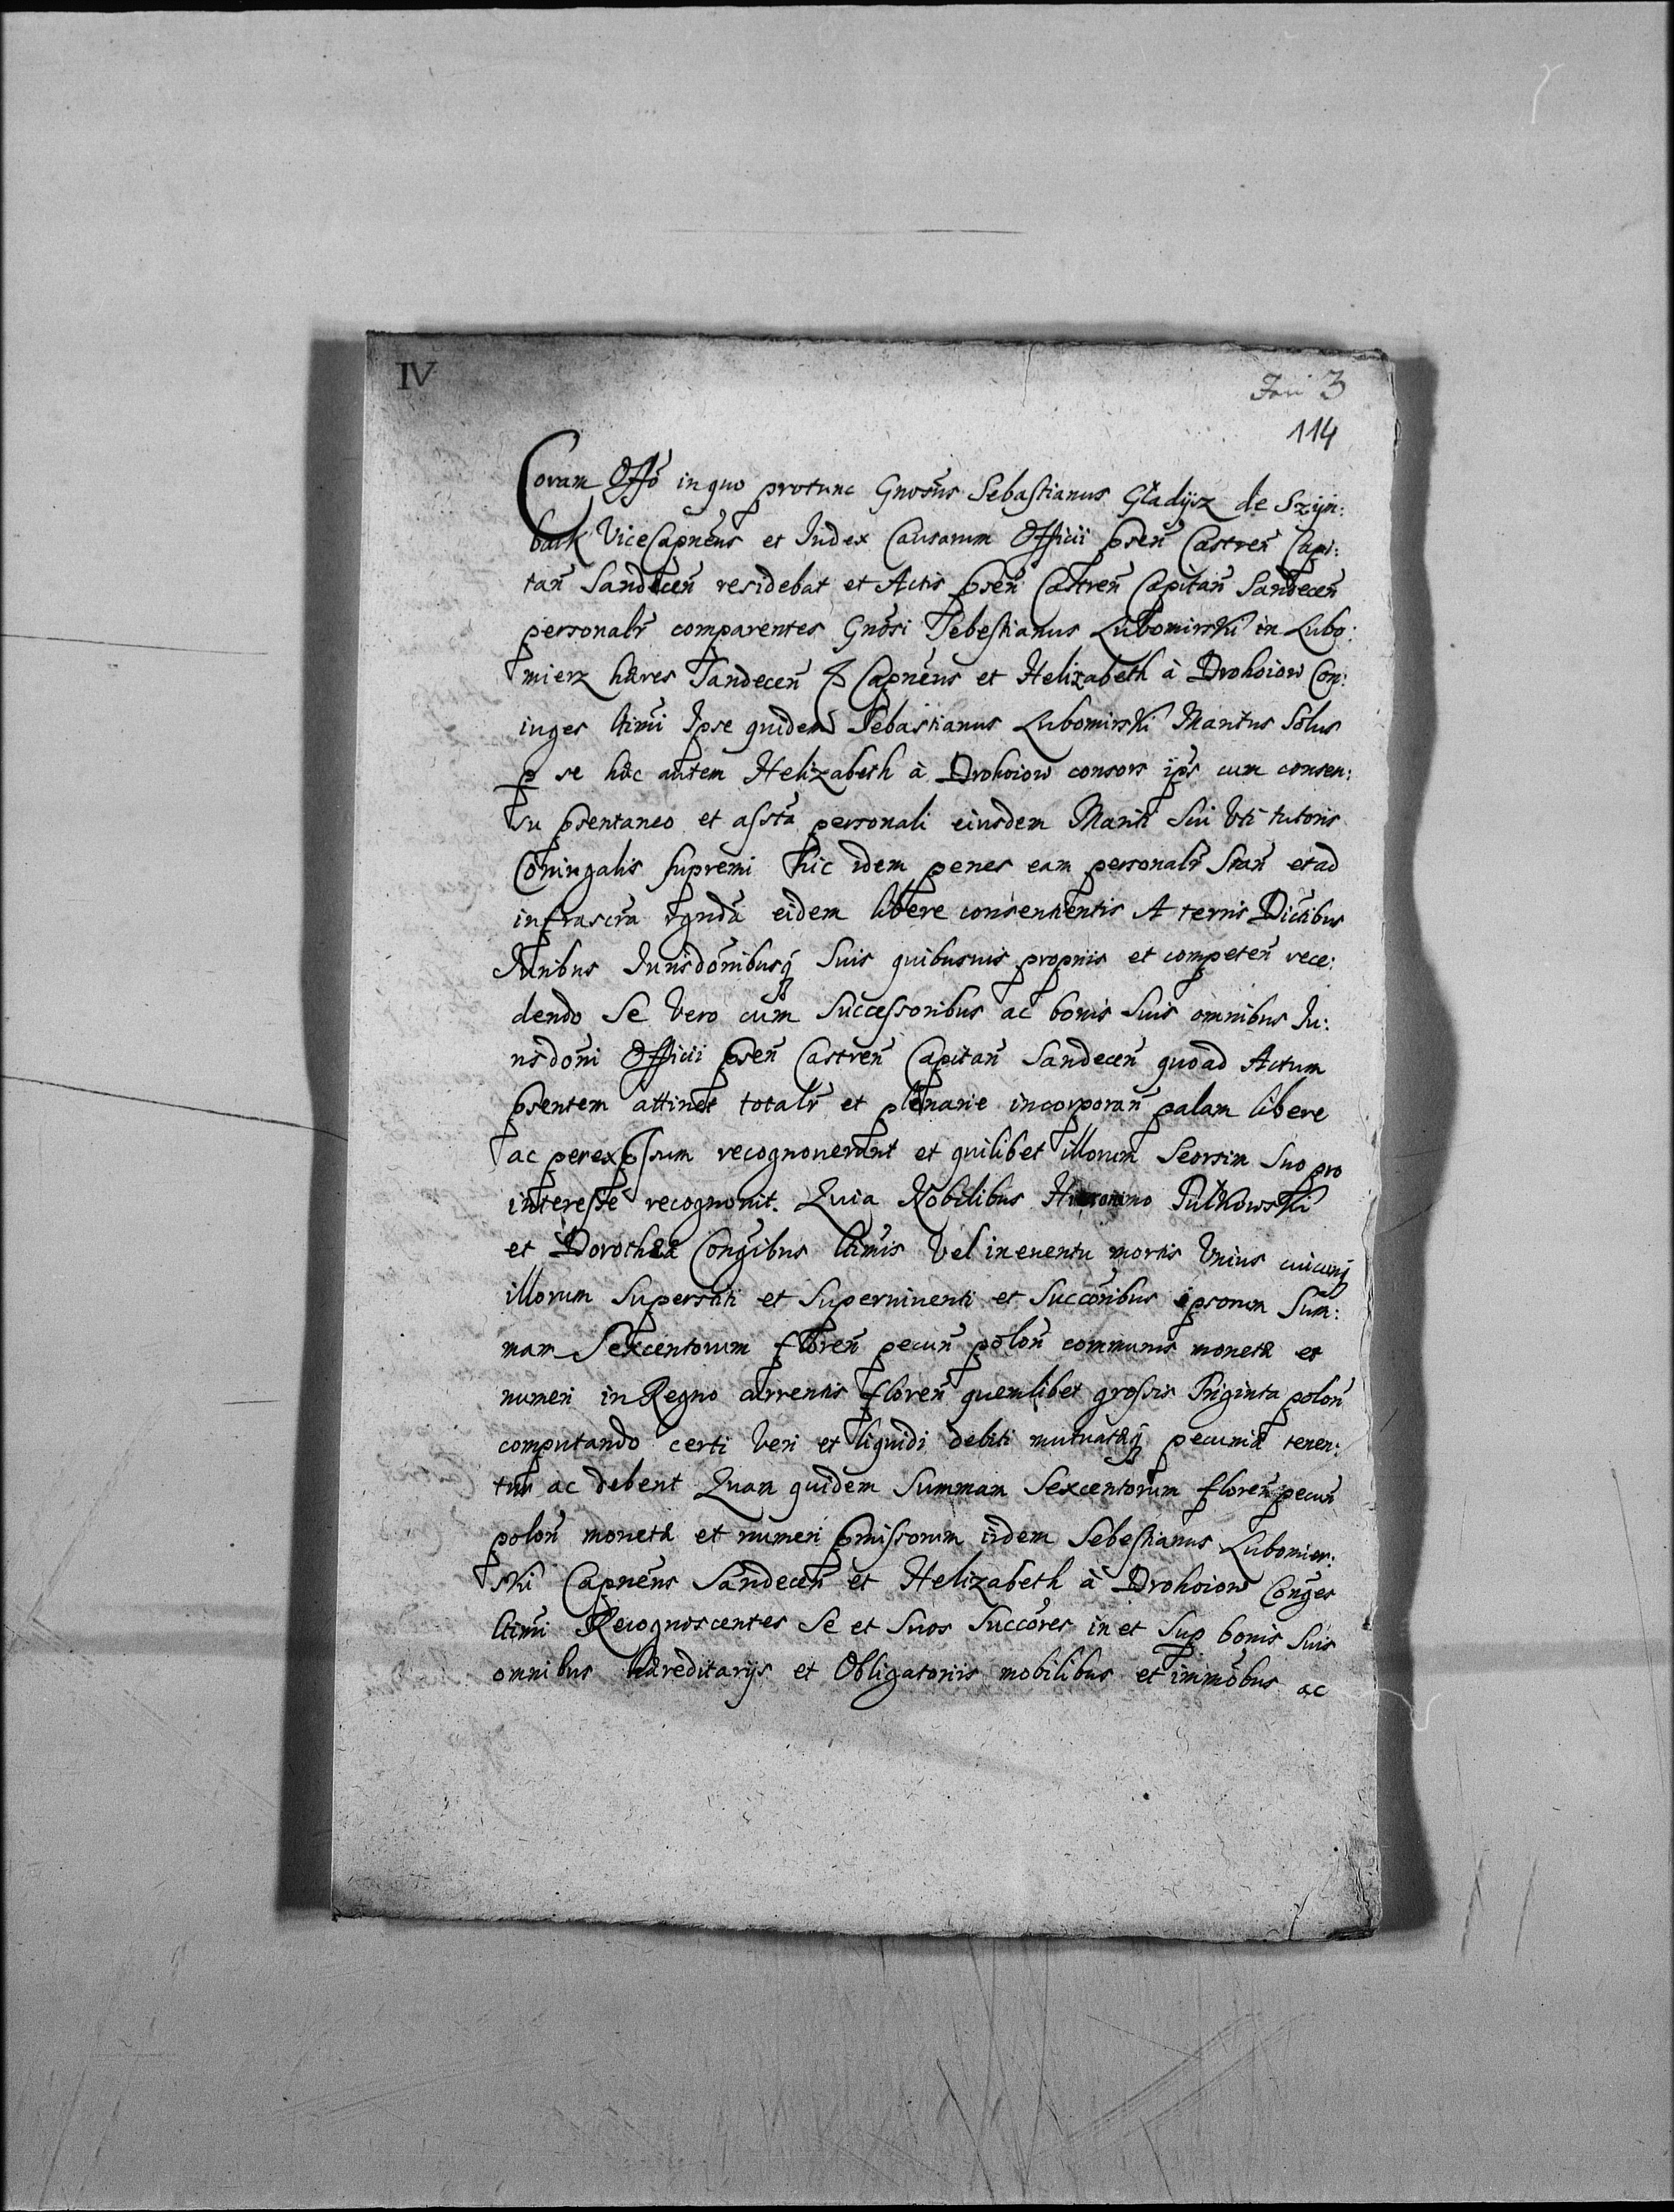 IV
3
114
Coram Offō in quo protunc Gnosūs Sebastianus Gładÿsz de Szÿm:
bark ViceCapnēus et Iudex Causarum Officii pseñ Castreñ Capi:
tañ Sandeceñ residebat et Actis pseñ Castreñ Capitañ Sandeceñ
personalr comparentes Gnōsi Sebestianus Lubomirski in Lubo:
mierz hæres Sandeceñ Capnēus et Helizabeth à Drohoiow Con:
iuges ltimi Ipse quidem Sebastianus Lubomirski Maritus Solus
p se hæc autem Helizabeth à Drohoiow consors ips cum consen:
su psentaneo et assta personali eiusdem Mariti Sui Vti tutoris
Coniugalis supremi hic idem penes eam personalr Stañ et ad
infrascra rgnda eidem libere consentientis A terris Dictibus
Iuribus Iurisdōnibusq Suis quibusuis proprüs et competeñ rece:
dendo Se Vero cum Successoribus ac bonis Suis omnibus Iu:
risdōni Officii pseñ Castreñ Capitañ Sandeceñ quoad Actum
psentem attinet totalr et plenarie incorporañ palam libere
ac per expssum recognouerunt et quilibet illorum Seorsim Suo pro
interesse recognouit. Quia Nobilibus Hieronimo Pulkowski
et Dorotheæ Congibus ltimis Vel in euentu mortis Vnius cuicunq
illorum Superstiti et Superuiuenti et Succōribus ipsorum Sum:
mam Sexcentorum floreñ pecuñ poloñ communis monetæ et
numeri in Regno currentis floreñ quemlibet grossis Triginta poloñ
computando certi Veri et liquidi debiti mutuatæq pecuniæ tenen:
tur ac debent Quam quidem Summam Sexcentorum floreñ pecuñ
poloñ monetæ et numeri pmissorum iidem Sebestianus Lubomier:
ski Capnēus Sandeceñ et Helizabeth à Drohoiow Conges
ltimi Recognoscentes Se et Suos Succōres in et Sup bonis Suis
omnibus hæreditarÿs et Obligatoriis mobilibus et immōbus ac